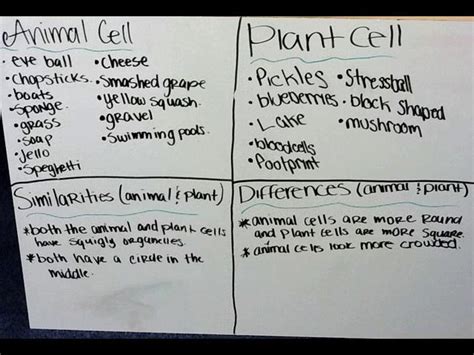 Animal Cell
• eye ball
• chopsticks
• boats
• sponge
• grass
• soap
• jello
• Speghetti
• Cheese
• Smashed grape
• Yellow squash
• gravel
• Swimming pools
Plant Cell
• Pickles
• blueberries
• Lake
• bloodcells
• footprint
• Stressball
• block shaped
• mushroom
Similarities (animal & plant)
* both the animal and plant cells
have squigly organelles.
* both have a circle in the
middle.
Differences (animal & plant)
* animal cells are more Round
and Plant cells are more square.
* animal cells look more crowded.